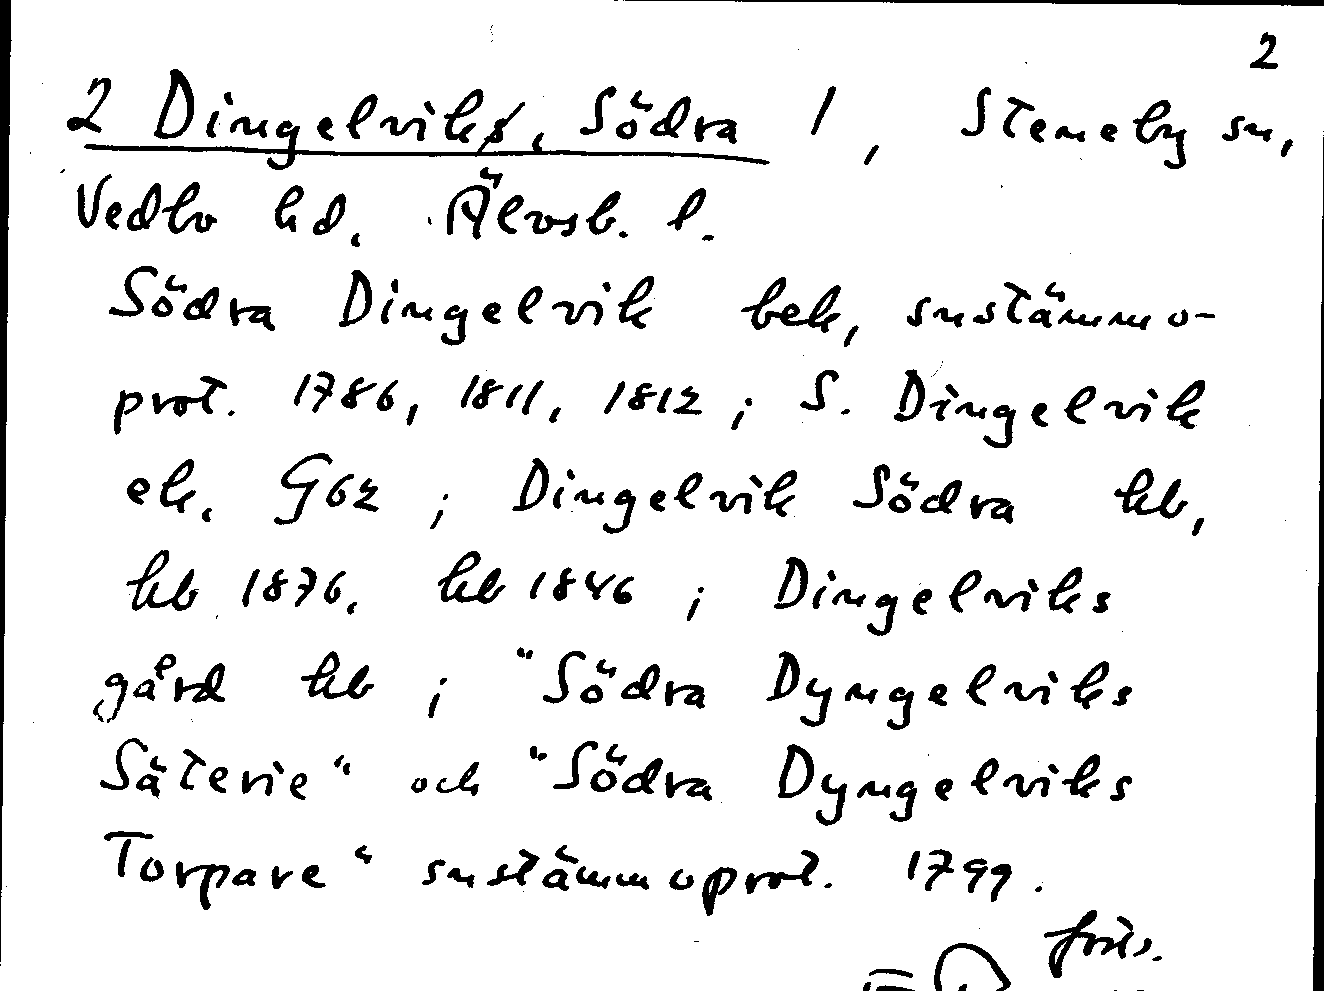 2
2 Dingelvik, Södra 1, Steneby sn,
Vedbo hd, Älvsb. l.
Södra Dingelvik bek, snstämmo-
prot. 1786, 1811, 1812; S. Dingelvik
ek, G62; Dingelvik Södra kb,
kb 1876, kb 1846; Dingelviks
gård kb; "Södra Dyngelviks
Säterie" och "Södra Dyngelviks
Torpare" snstämmoprot. 1799.